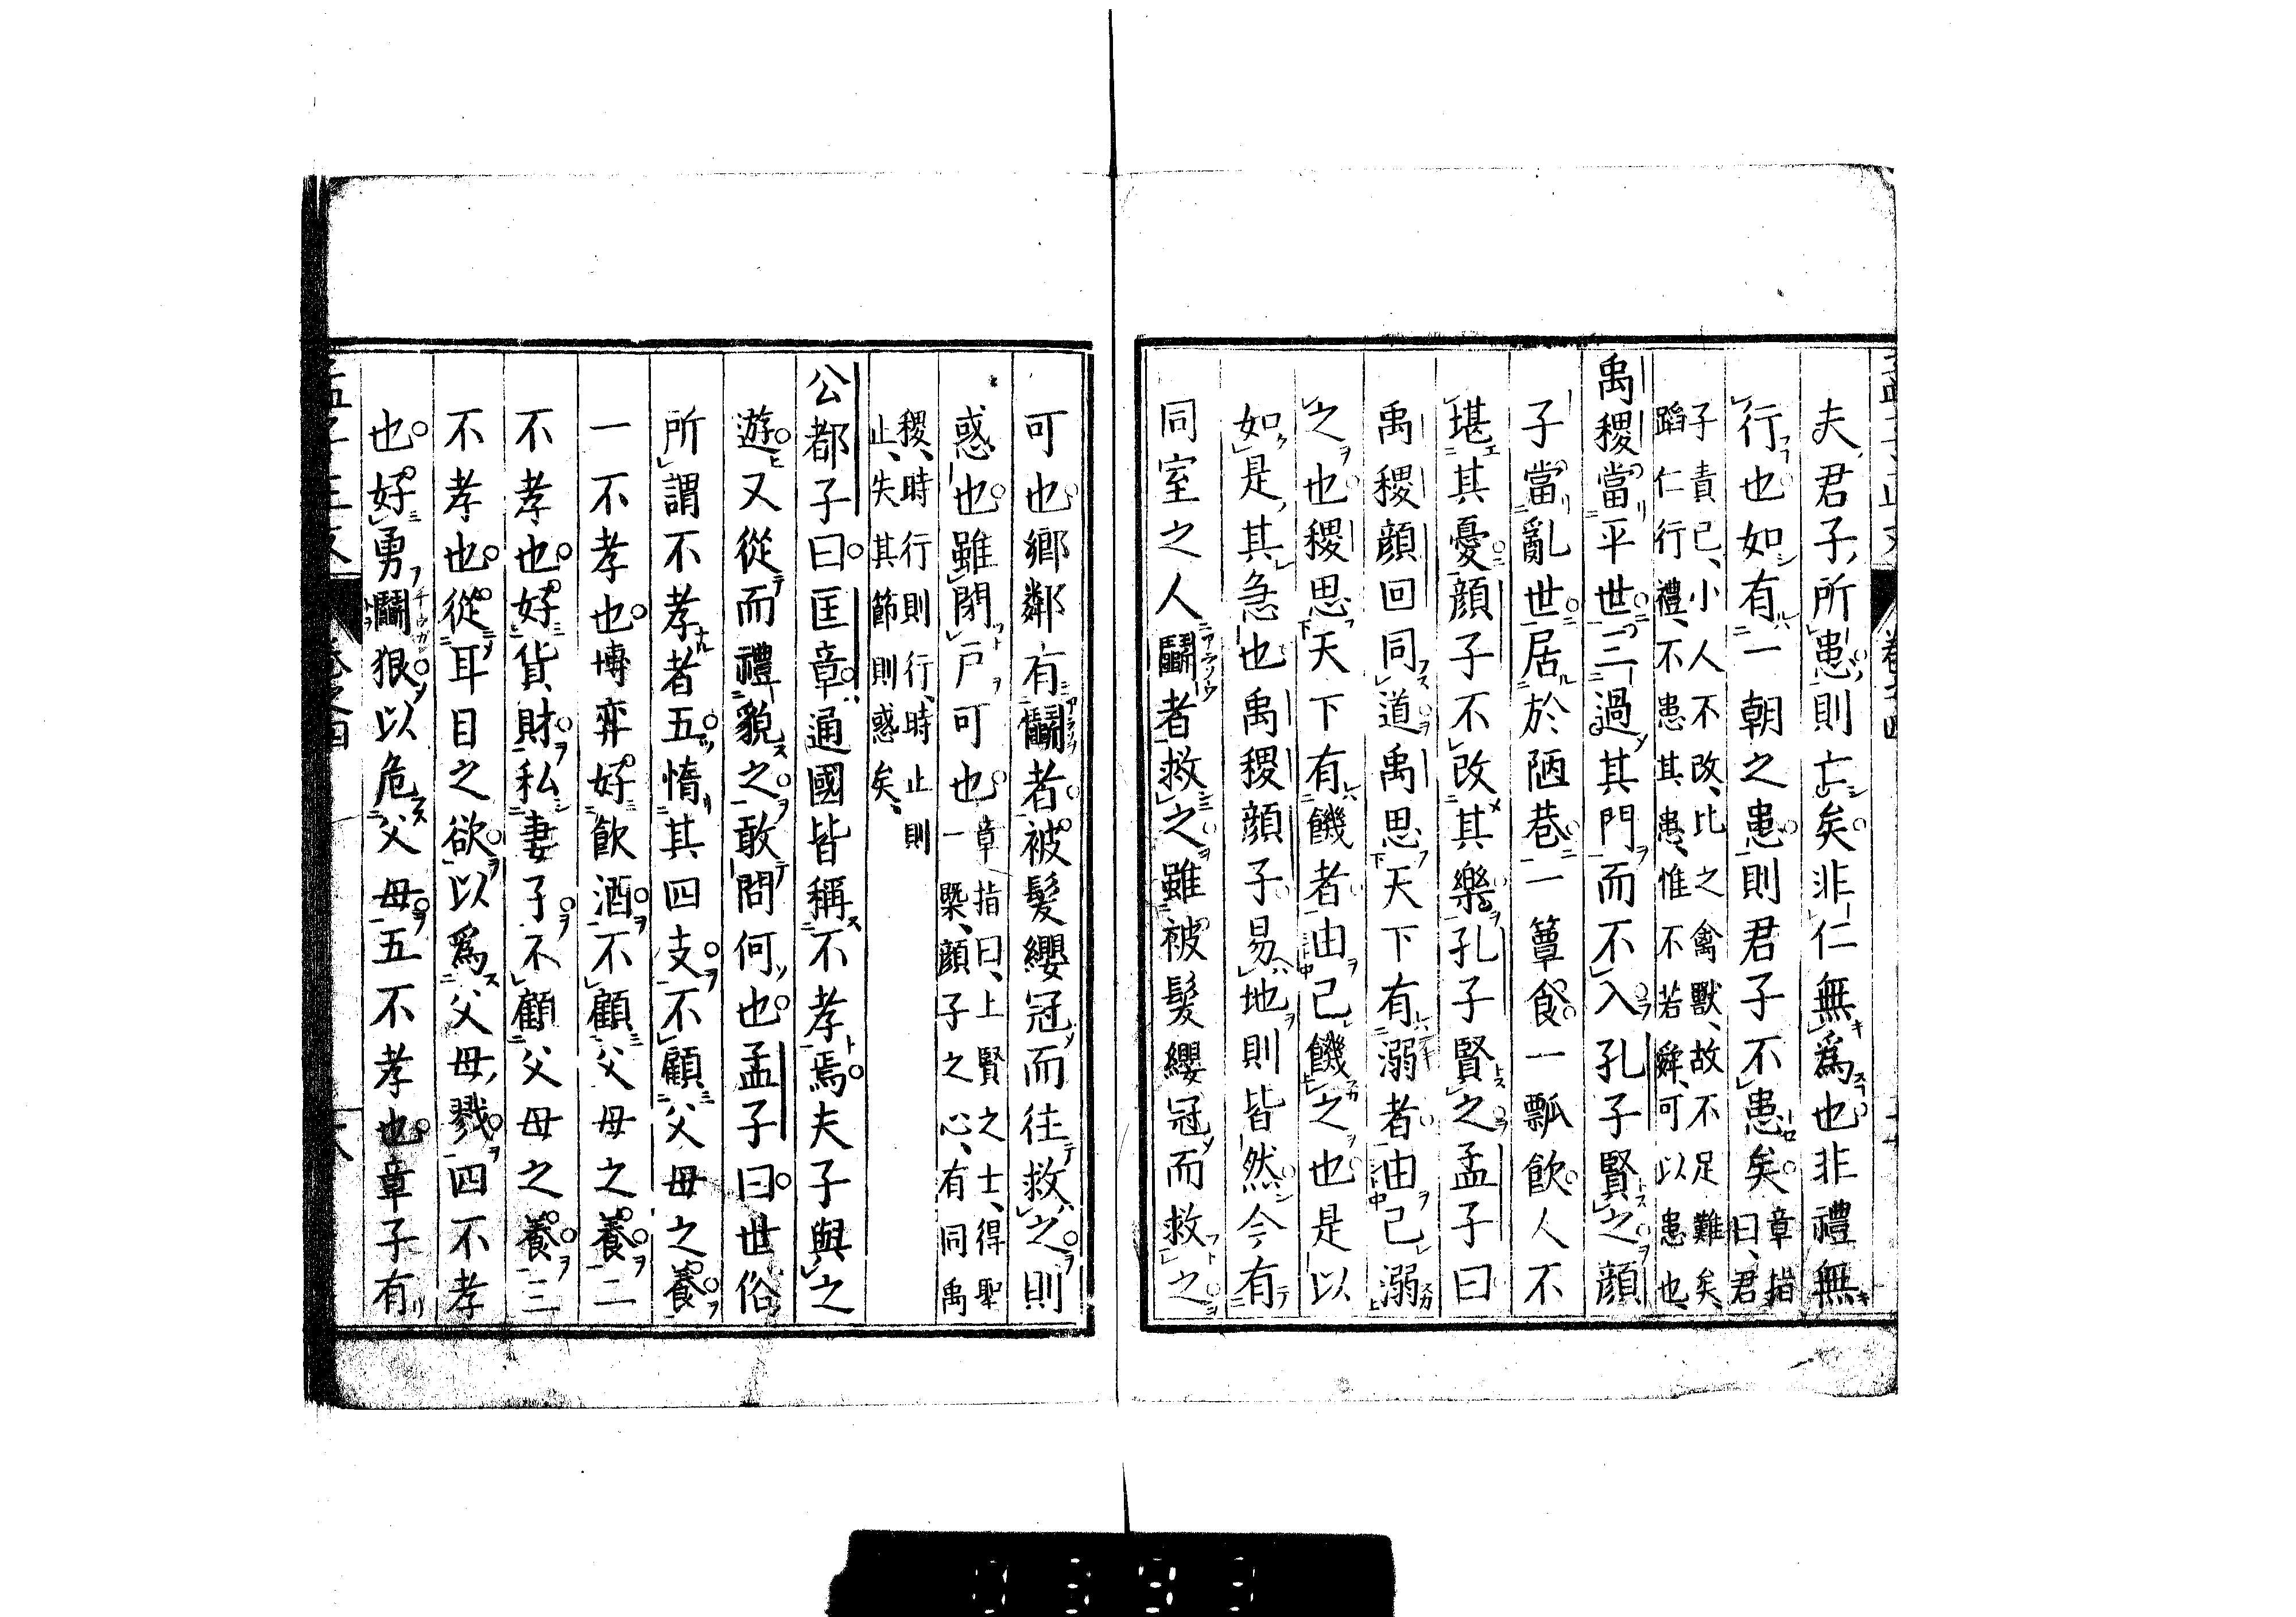 夫君子所患則亡矣非仁無爲也非禮無
行也如有一朝之患則君子不患矣章指曰、君
子責已、小人不改、比之禽獸、故不足難矣、
蹈仁行禮、不患其患、惟不若舜、可以患也、
禹稷當平世三過其門而不入孔子賢之顔
子當亂世居於陋巷一簞食一瓢飮人不
堪其憂顔子不改其樂孔子賢之孟子曰
禹稷顔回同道禹思天下有溺者由己溺
之也稷思天下有饑者由己饑之也是以
如是其急也禹稷顔子易地則皆然今有
同室之人鬭者救之雖被髮纓冠而救之
可也鄉鄰有鬭者被髮纓冠而往救之則
惑也雖閉戸可也章指曰、上賢之士、得聖
一槩、顔子之心、有同禹
稷、時行則行、時止則
止、失其節則惑矣、
公都子曰匡章通國皆稱不孝焉夫子與之
遊又從而禮貌之敢問何也孟子曰世俗
所謂不孝者五惰其四支不顧父母之養
一不孝也博弈好飮酒不顧父母之養二
不孝也好貨財私妻子不顧父母之養三
不孝也從耳目之欲以爲父母戮四不孝
也好勇鬭狠以危父母五不孝也章子有